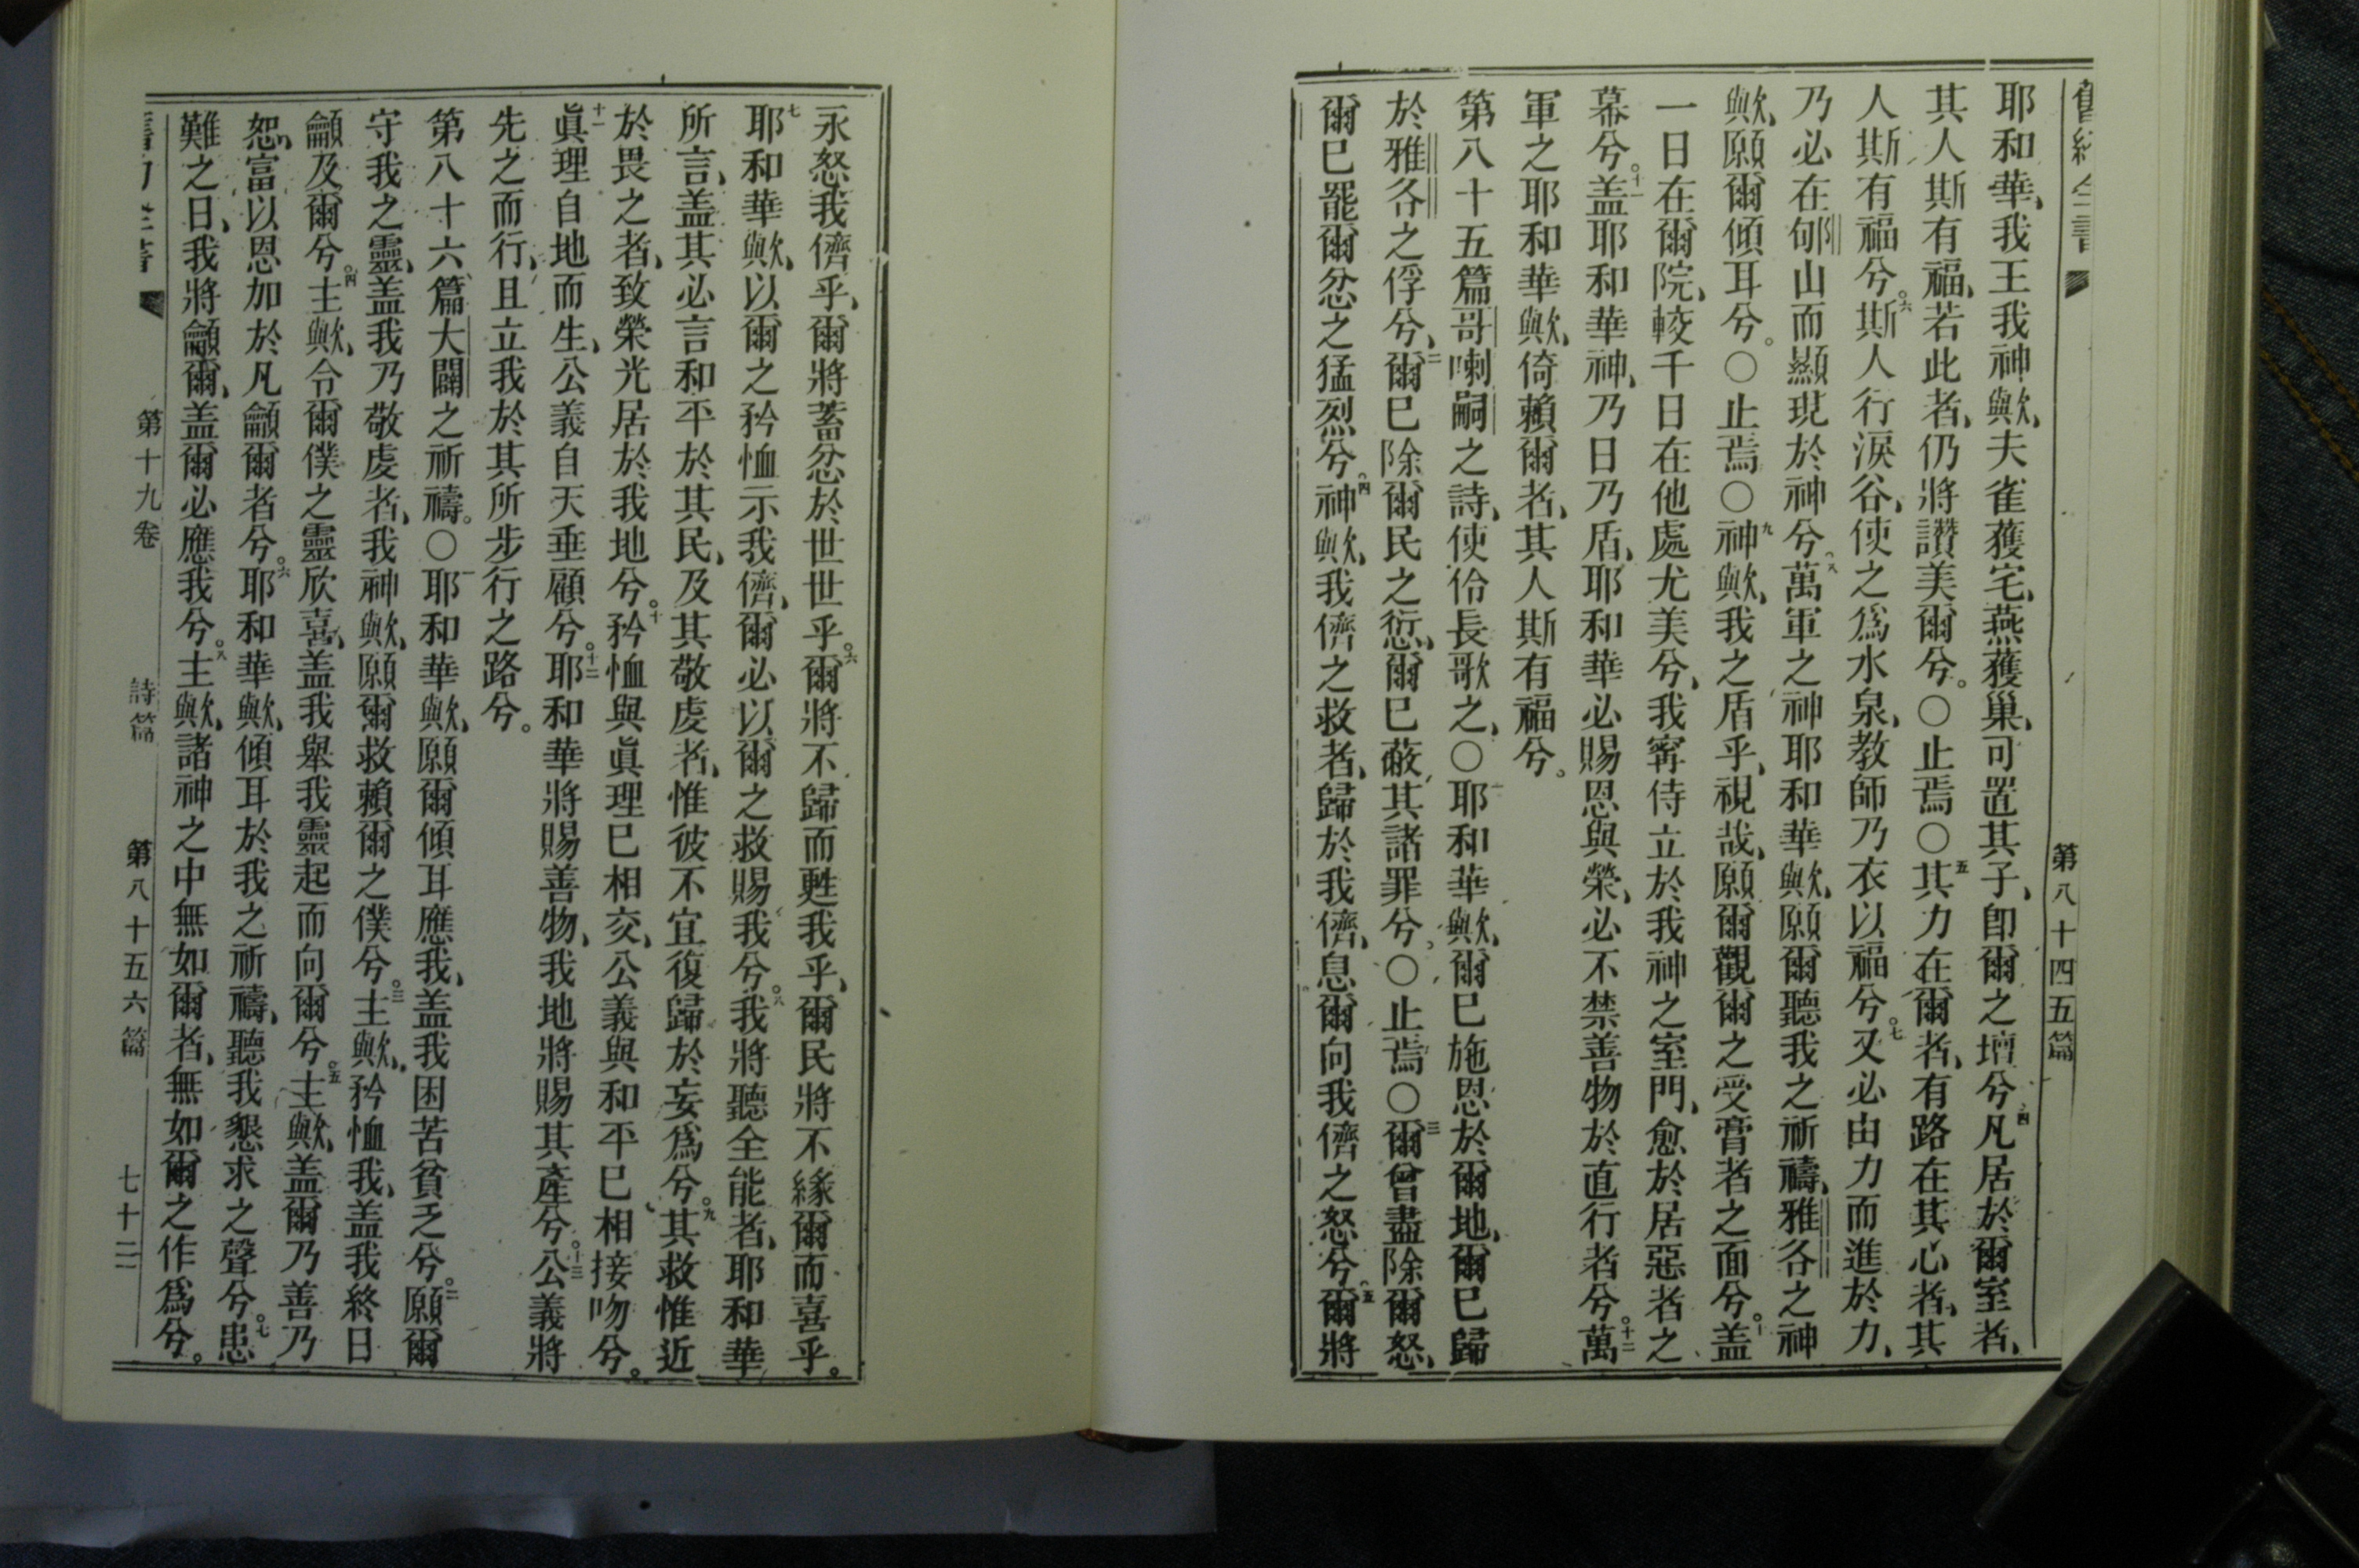 第八十四五篇
耶和華、我王我神歟、夫雀獲宅、燕獲巢、可置其子、卽爾之壇兮。四凡居於爾室者、
其人斯有福、若此者、仍將讚美爾兮。〇止焉〇五其力在爾者、有路在其心者、其
人斯有福兮。六斯人行淚谷、使之爲水泉、教師乃衣以福兮。七又必由力而進於力、
乃必在郇山而顯現於神兮。八萬軍之神耶和華歟、願爾聽我之祈禱、雅各之神
歟、願爾傾耳兮。〇止焉〇九神歟、我之盾乎、視哉、願爾觀爾之受膏者之面兮。十盖
一日在爾院、較千日在他處尤美兮、我寗侍立於我神之室門、愈於居惡者之
幕兮。十一盖耶和華神、乃日乃盾、耶和華必賜恩與榮、必不禁善物於直行者兮。十二萬
軍之耶和華歟、倚賴爾者、其人斯有福兮。
第八十五篇哥喇嗣之詩、使伶長歌之、〇一耶和華歟、爾已施恩於爾地、爾已歸
於雅各之俘兮、二爾已除爾民之愆、爾已蔽其諸罪兮。〇止焉〇三爾曾盡除爾怒、
爾已罷爾忿之猛烈兮。四神歟、我儕之救者、歸於我儕、息爾向我儕之怒兮。五爾將
永怒我儕乎、爾將蓄忿於世世乎。六爾將不歸而甦我乎、爾民將不緣爾而喜乎。
七耶和華歟、以爾之矜恤示我儕、爾必以爾之救賜我兮。八我將聽全能者、耶和華
所言、盖其必言和平於其民、及其敬虔者、惟彼不宜復歸於妄爲兮。九其救惟近
於畏之者、致榮光居於我地兮。十矜恤與眞理已相交、公義與和平已相接吻兮。
十一眞理自地而生、公義自天垂顧兮。十二耶和華將賜善物、我地將賜其產兮。十三公義將
先之而行、且立我於其所步行之路兮。
第八十六篇大闢之祈禱。〇一耶和華歟、願爾傾耳應我、盖我困苦貧乏兮。二願爾
守我之靈、盖我乃敬虔者、我神歟、願爾救賴爾之僕兮。三主歟、矜恤我、盖我終日
籲及爾兮。四主歟、令爾僕之靈欣喜、盖我舉我靈起而向爾兮。五主歟、盖爾乃善乃
恕、富以恩加於凡籲爾者兮。六耶和華歟、傾耳於我之祈禱、聽我懇求之聲兮。七患
難之日、我將籲爾、盖爾必應我兮。八主歟、諸神之中無如爾者、無如爾之作爲兮。
第十九卷 詩篇 第八十五六篇 七十二